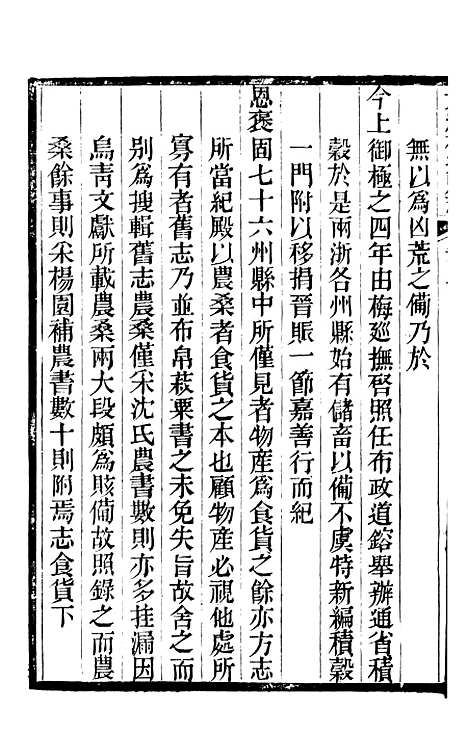 無以爲凶荒之備乃於
今上御極之四年由梅廵撫啓照任布政道鎔舉辦通省積
穀於是兩浙各州縣始有儲畜以備不虞特新編積穀
一門附以移捐晉賑一節嘉善行而紀
恩褒固七十六州縣中所僅見者物産爲食貨之餘亦方志
所當紀殿以農桑者食貨之本也顧物産必視他處所
寡有者舊志乃並布帛菽粟書之未免失旨故舍之而
别爲搜輯舊志農桑僅采沈氏農書數則亦多挂漏因
烏青文獻所載農桑兩大段頗爲賅備故照錄之而農
桑餘事則采楊園補農書數十則附焉志食貨下